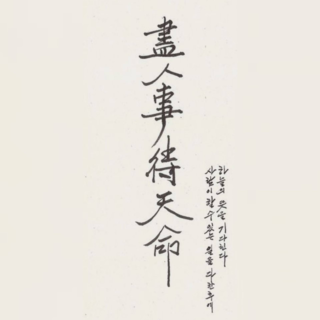 盡人事待天命
사람이 할 수 있는 일을 다한 후에
하늘의 뜻을 기다린다